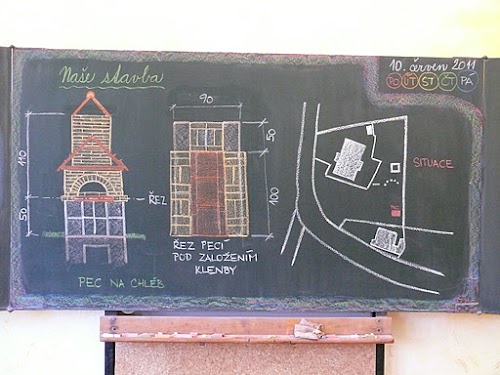 Naše stavba
10. červen 2011
PO ÚT ST ČT PÁ
90
110
50
ŘEZ
50
100
SITUACE
ŘEZ PECÍ
POD ZALOŽENÍM
KLENBY
PEC NA CHLÉB